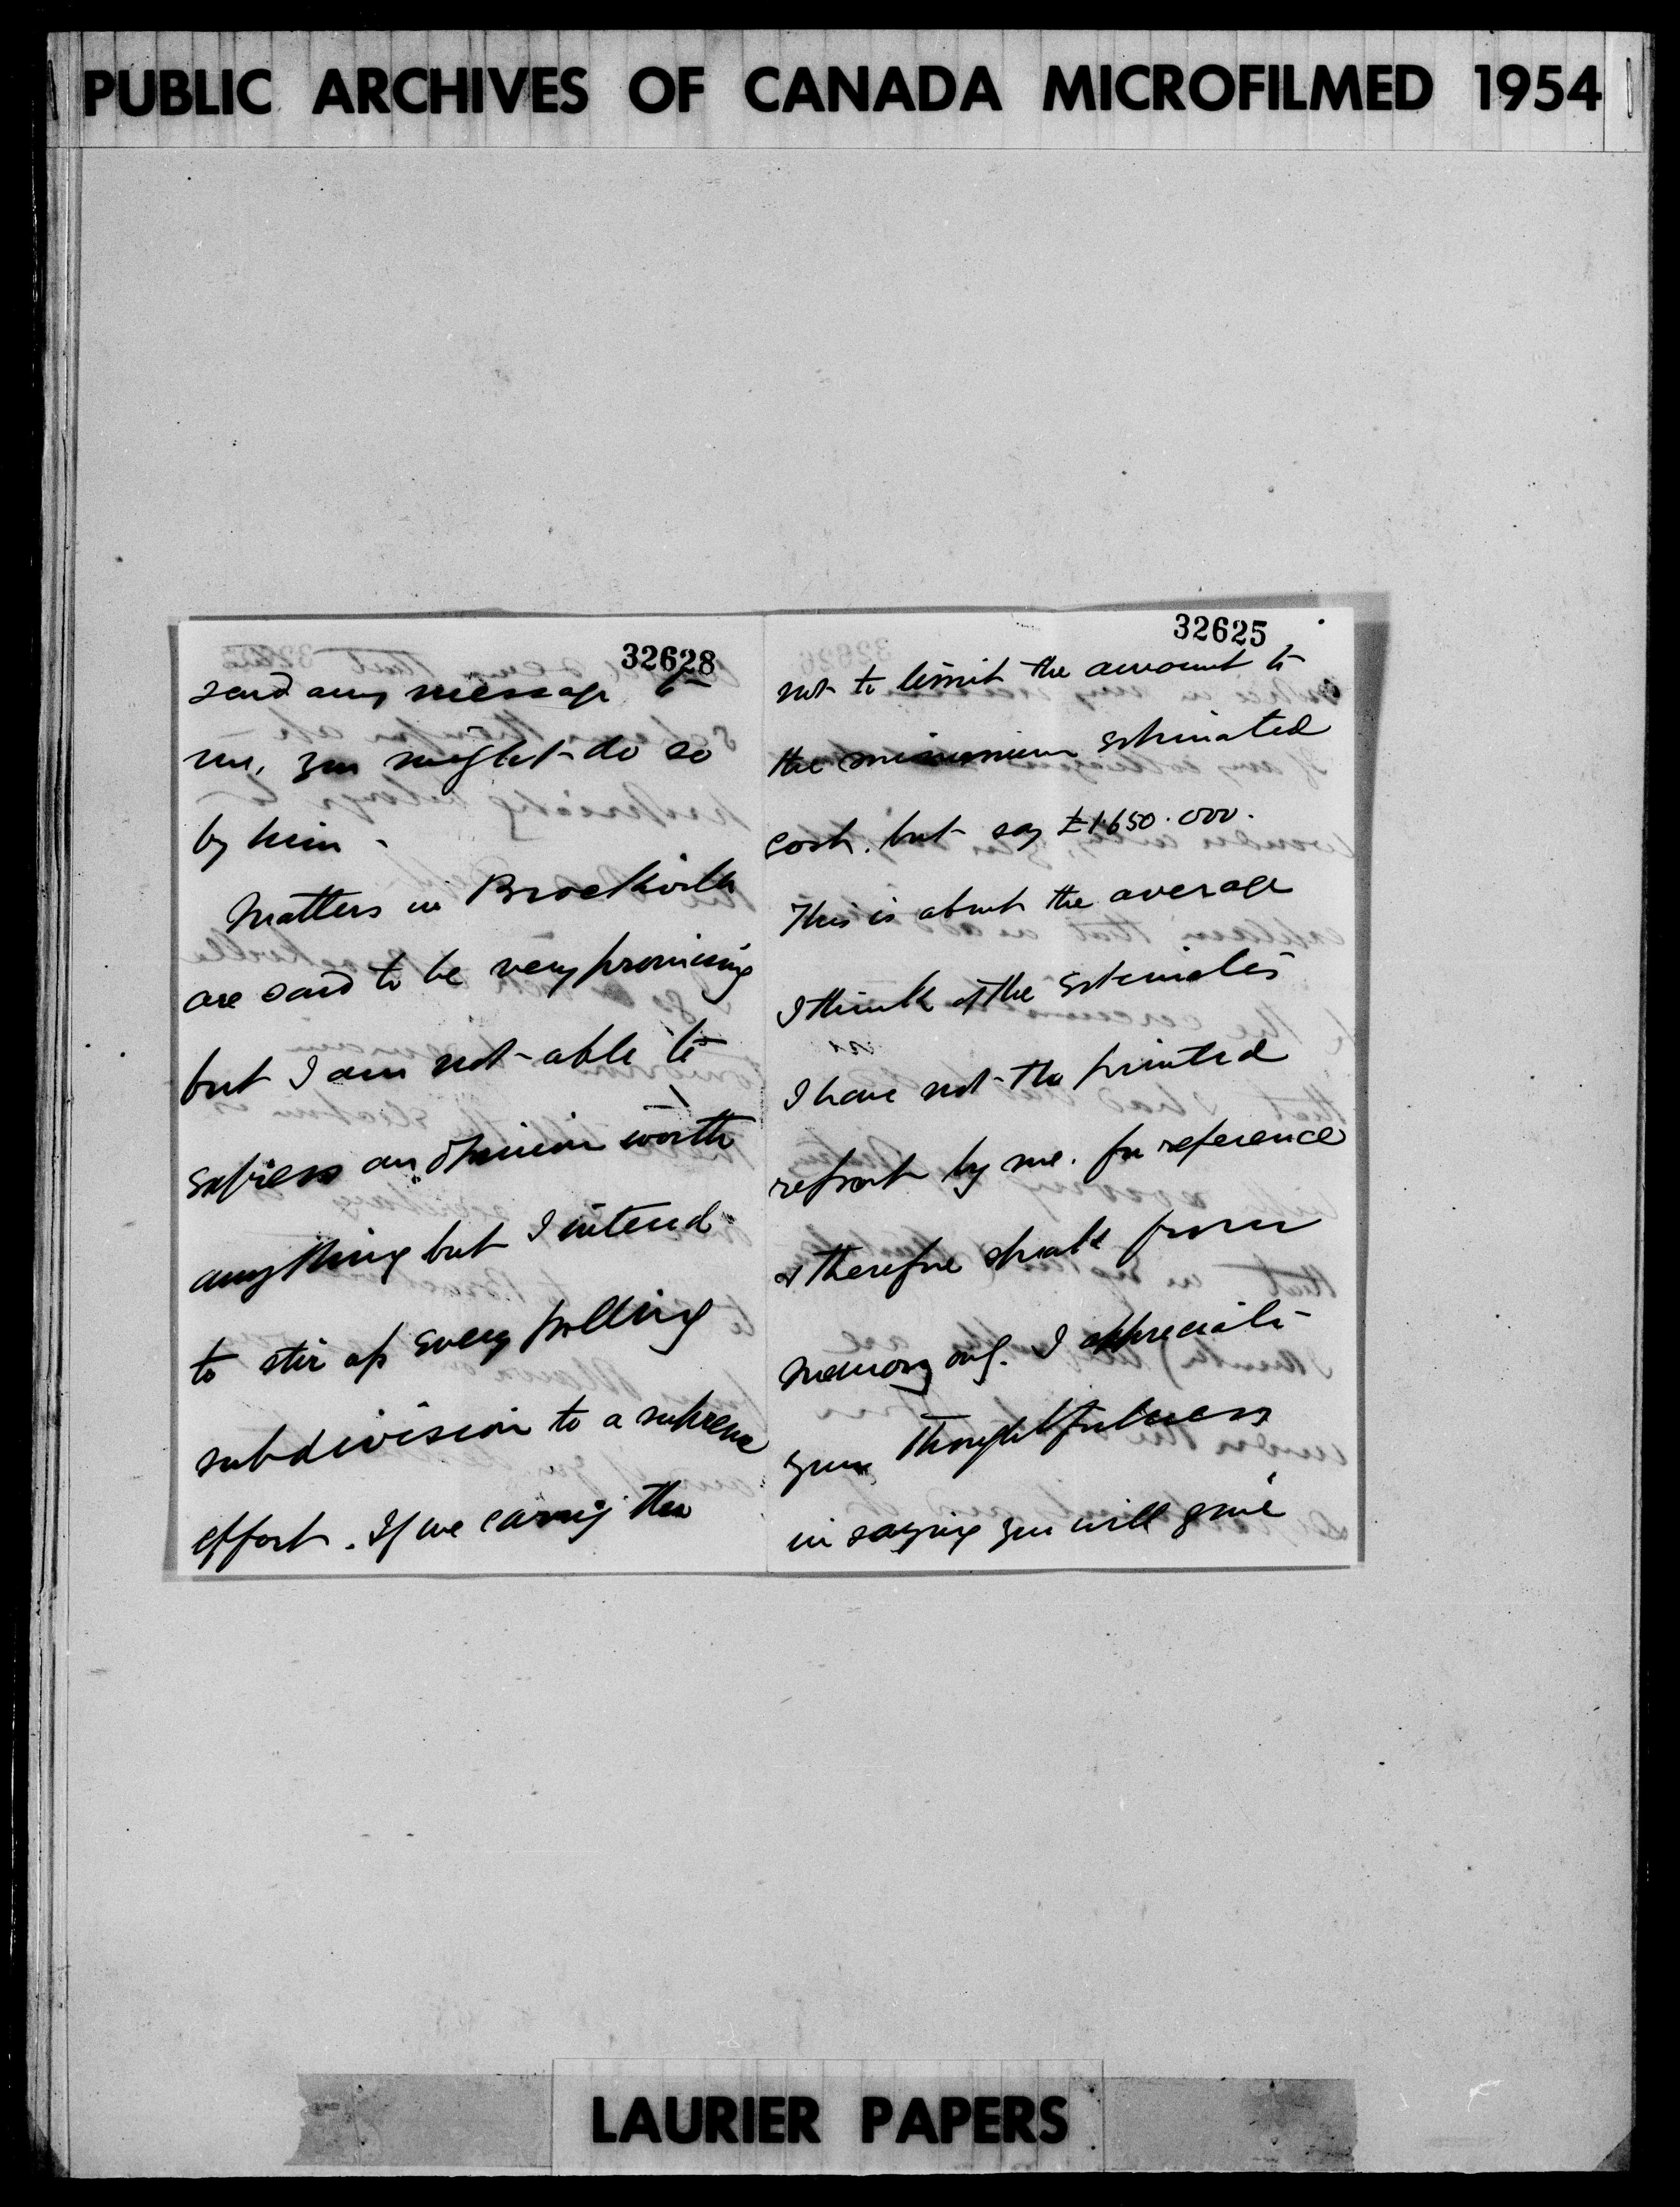 PUBLIC ARCHIVES OF CANADA MICROFILMED 1954
32628
send any message to
me, you might do so
by him -
Matters in Brockville
are said to be very promising
but I am not able to
express an opinion worth
anything but I intend
to stir up every polling
subdivision to a supreme
effort. If we carry the
32625
not to limit the amount to
the minimum estimated
cost. but say £1.650.000.
This is about the average
I think of the estimates
I have not the printed
report by me. for reference
& therefore speak from
memory only. I appreciate
your thoughtfulness
in saying you will give
LAURIER PAPERS